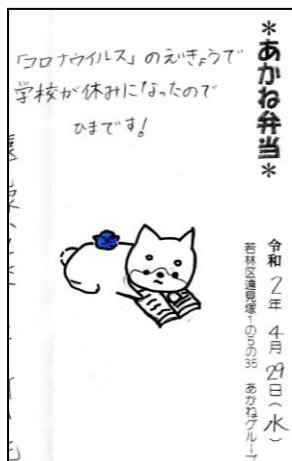 ＊あかね弁当＊
令和2年4月29日(水)
若林区遠見塚1の5の35 あかねグループ
「コロナウイルス」のえいきょうで
学校が休みになったので
ひまです!